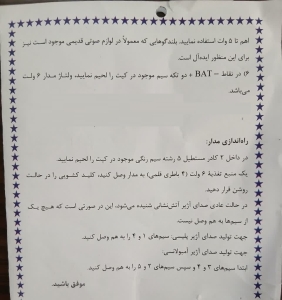 اهم تا ۵ وات استفاده نمایید. بلندگوهایی که معمولاً در لوازم صوتی قدیمی موجود است نیز
برای این منظور ایده‌آل است.
۶) در نقاط BAT - + دو تکه سیم موجود در کیت را لحیم نمایید، ولتاژ مدار ۶ ولت
می‌باشد.
راه‌اندازی مدار:
در داخل ۲ کادر مستطیل ۵ رشته سیم رنگی موجود در کیت را لحیم نمایید.
یک منبع تغذیهٔ ۶ ولت (۴ باطری قلمی) به مدار وصل کنید، کلید کشویی را در حالت
روشن قرار دهید.
در حالت عادی صدای آژیر آتش‌نشانی شنیده می‌شود، این در صورتی است که هیچ یک
از سیم‌ها به هم وصل نیست.
جهت تولید صدای آژیر پلیسی: سیم‌های ۱ و ۴ را به هم وصل کنید.
جهت تولید صدای آژیر آمبولانسی:
ابتدا سیم‌های ۳ و ۴ و سپس سیم‌های ۲ و ۵ را به هم وصل کنید.
موفق باشید.